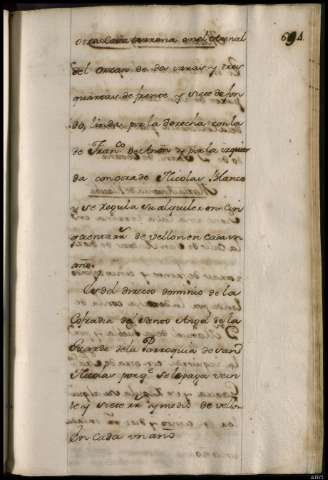 694
Otra Casa terrena en el Arenal
del Orzan de dos varas y tres
quartas de frente y siete de fon
do, linda por la derecha con la
de Franco. de Anton y por la izquier
da con otra de Nicolas Blanco
y se regula su alquiler en Cin
cuenta rrs. de vellon en cada un
año.
Es del directo dominio de la
Cofradia del Santo Angel de la
Guarda de la Parroquia de San
Nicolas por qe. se le paga vein
te y siete rrs y medio de vellon
en cada un año